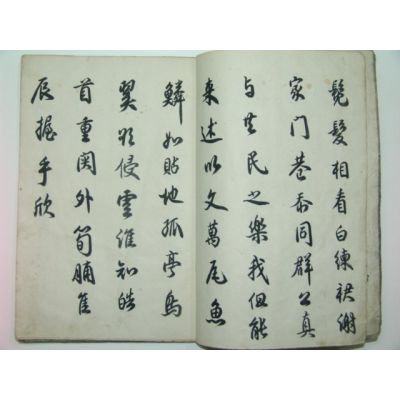 鬢髮相看白練裙謝
家门巷忝同群公真
与共民之樂我但能
来述以文萬尾魚
鱗如貼地孤亭鳥
翼欲侵雲誰知皓
首重関外筍脯佳
辰握手欣